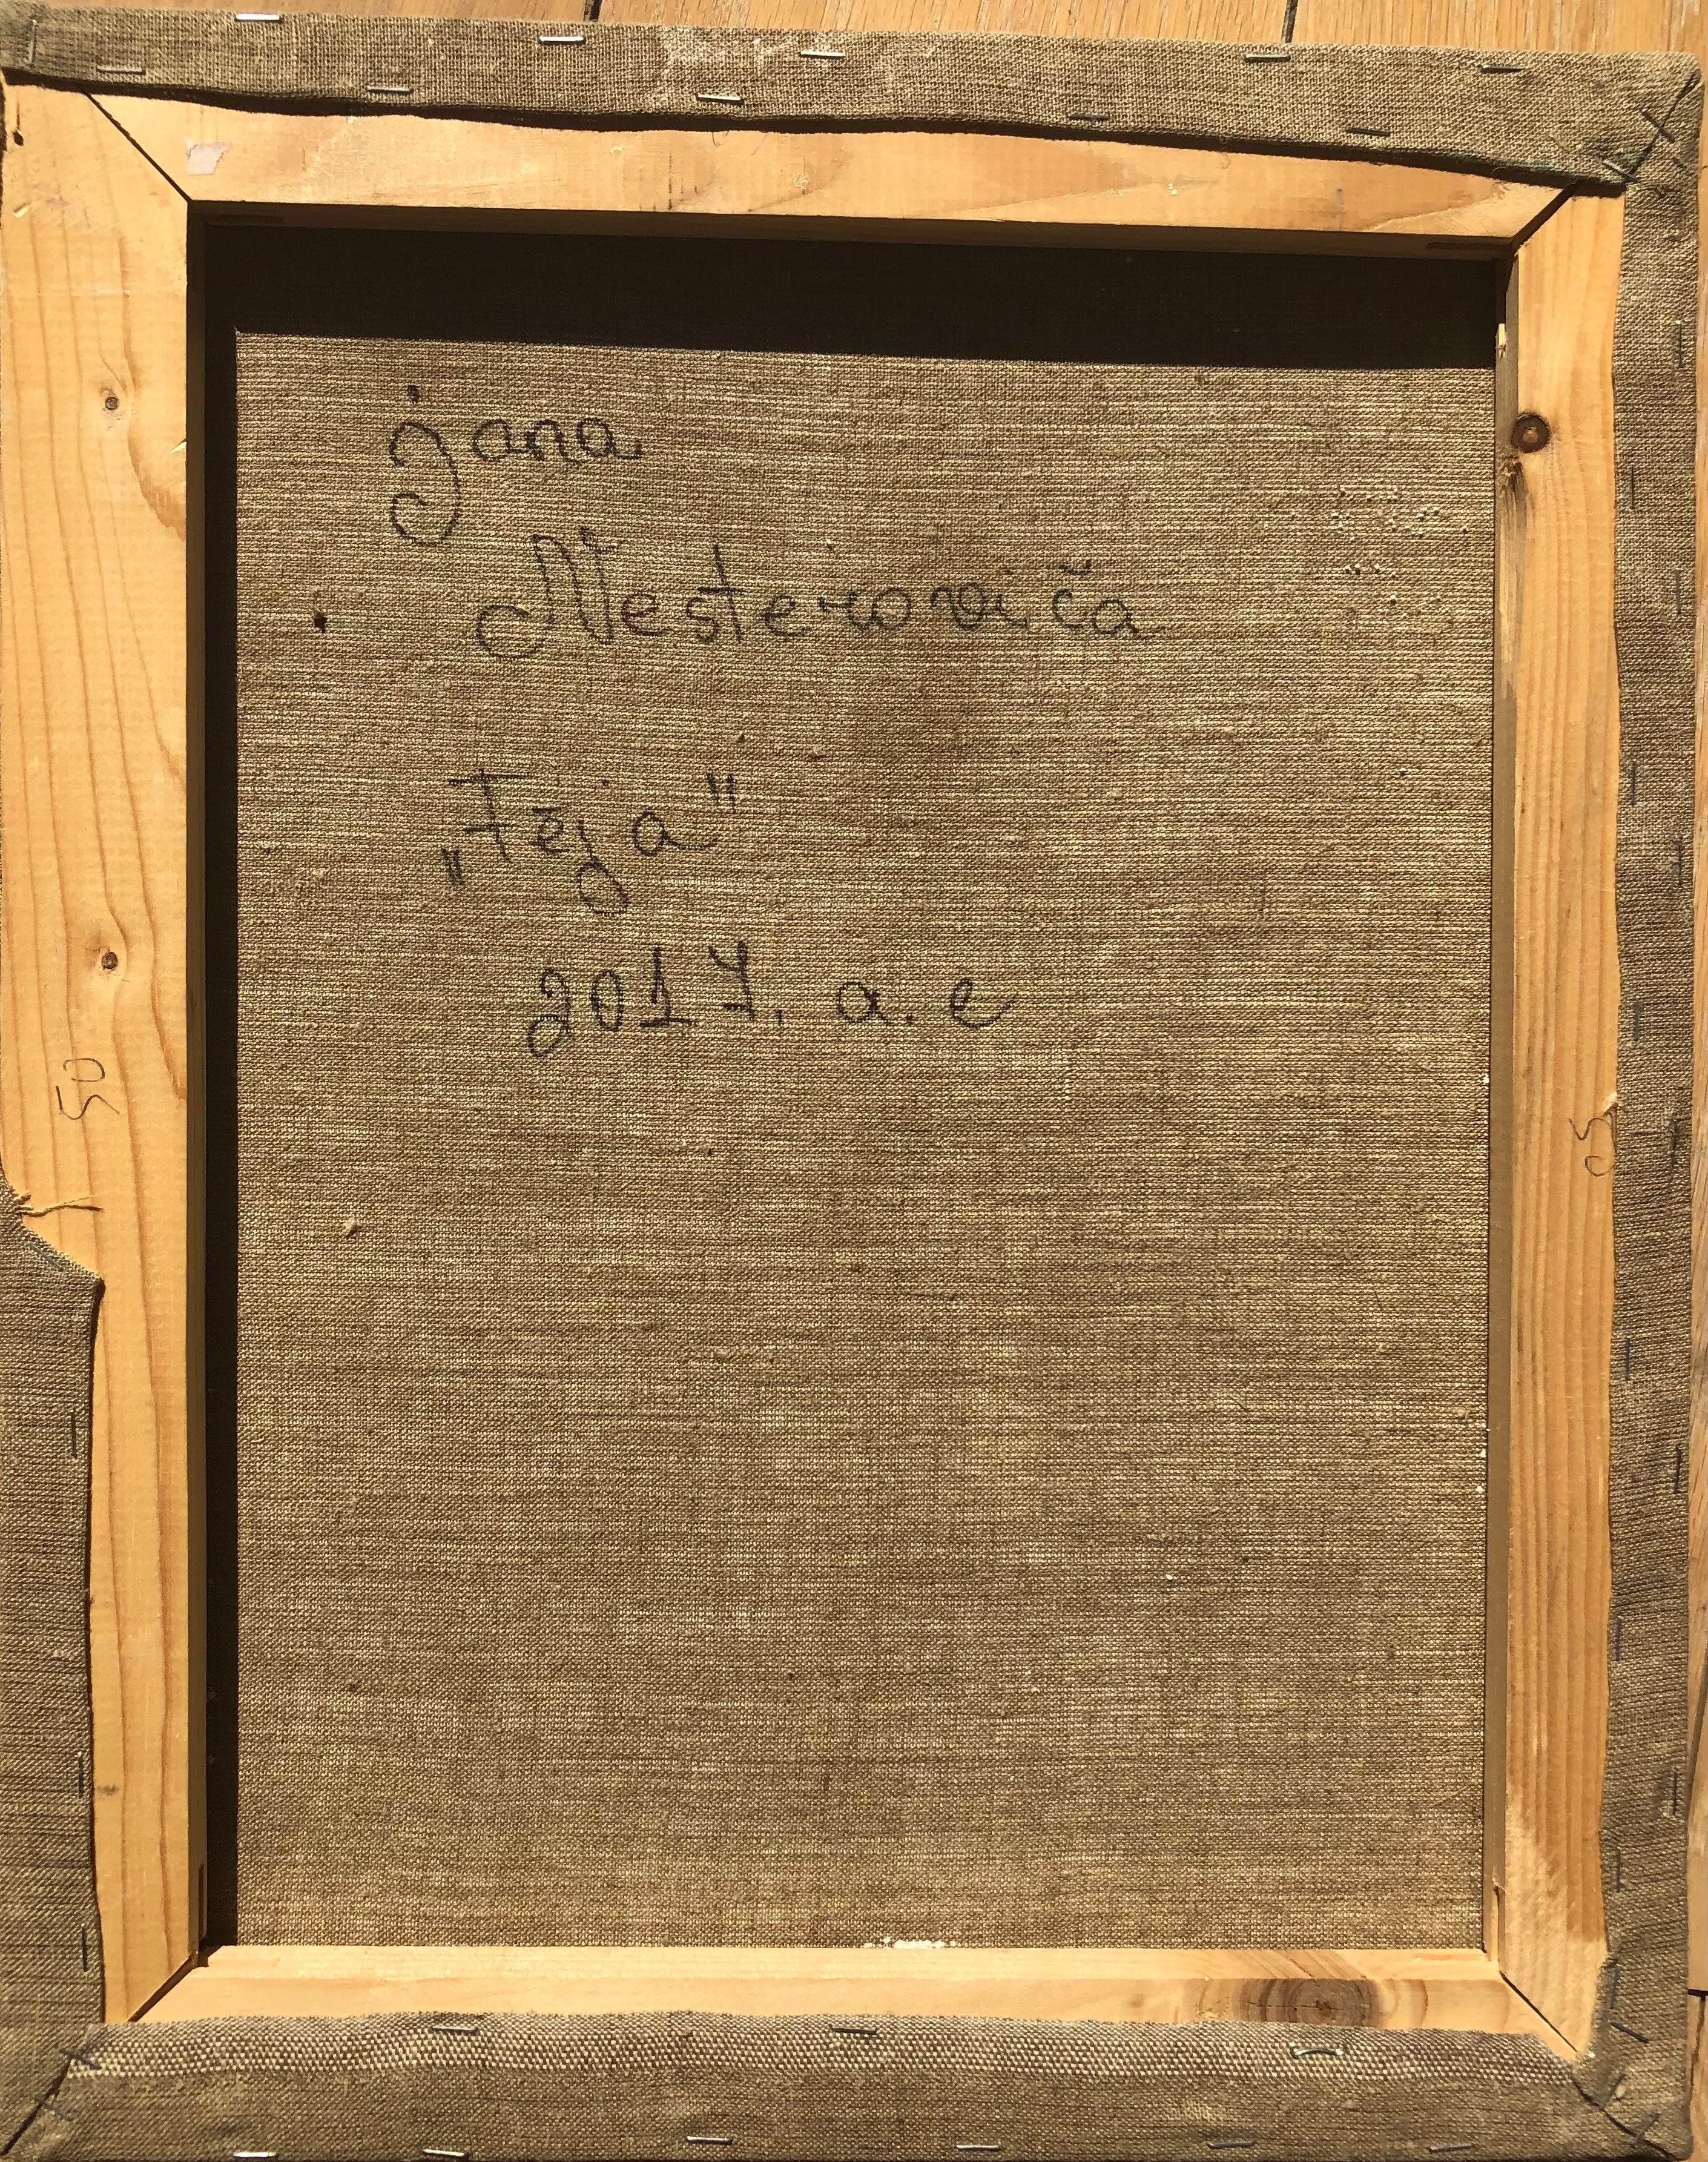 jana
Nesteroviča
„Fēja"
2017. a. e
50
50